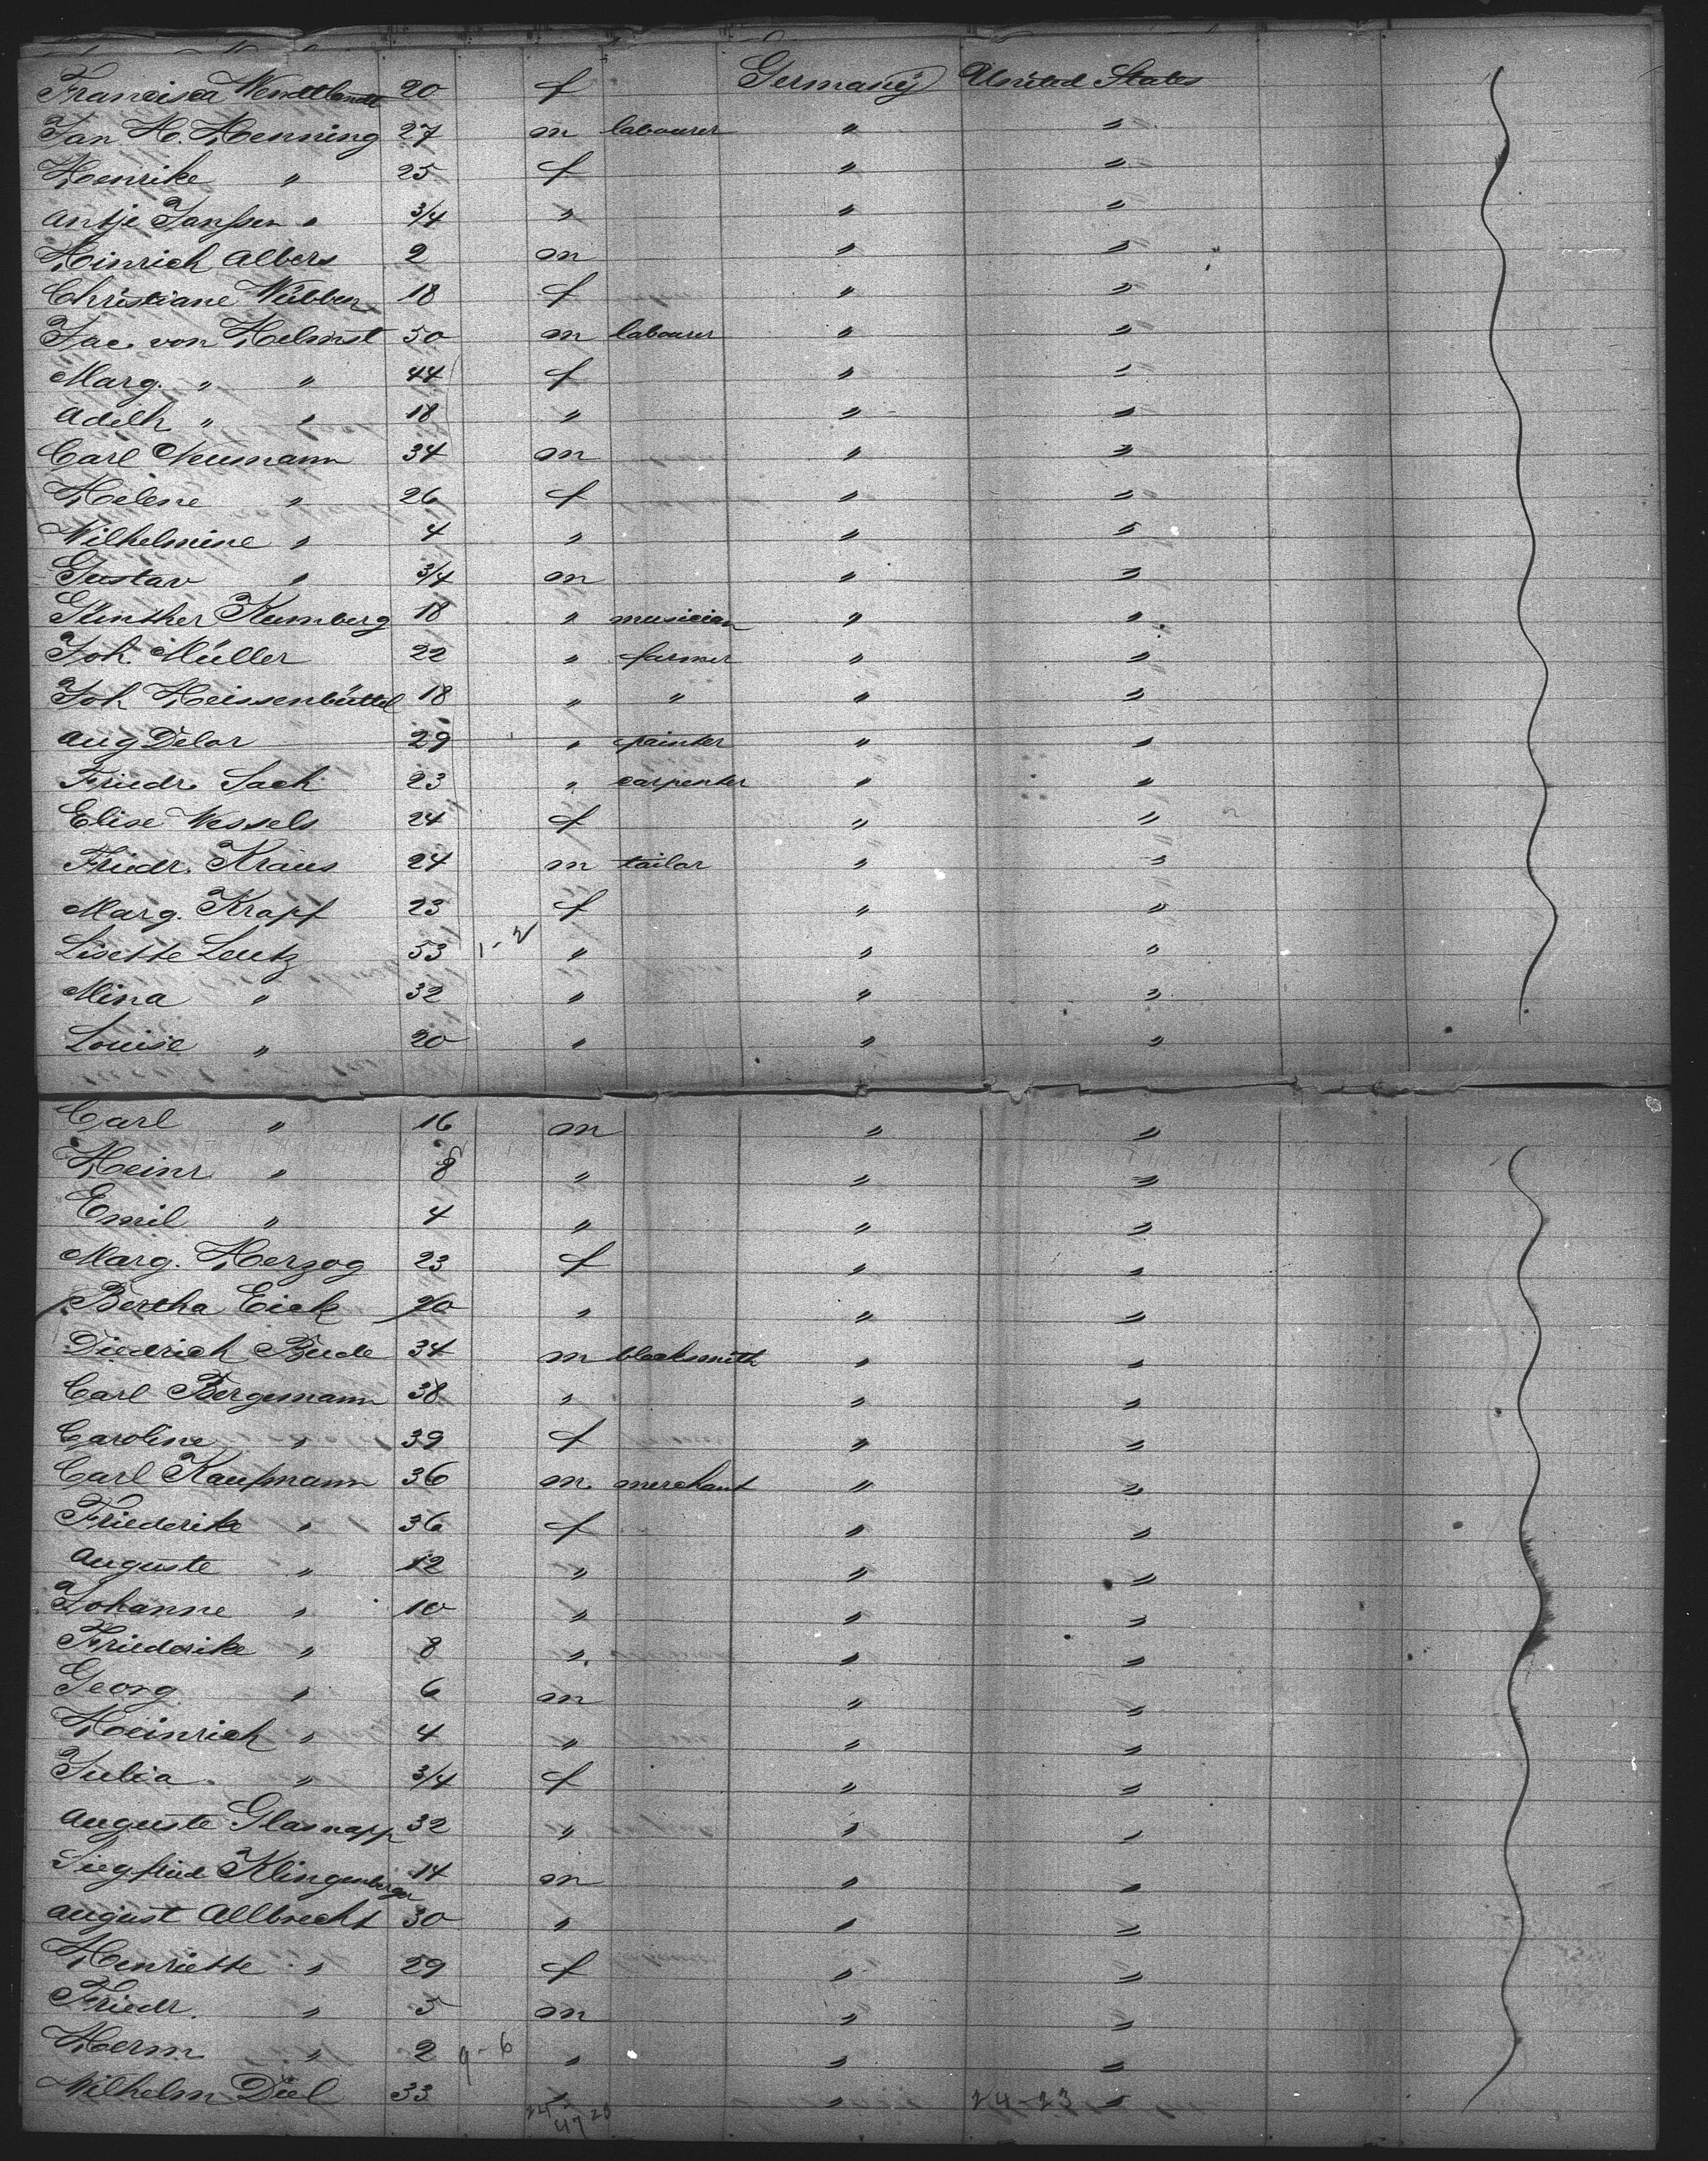 Francisca Wendtlandt 20 f Germany United States
Jan H. Henning 27 m labourer " "
Henrike " 25 f " "
Antje Janssen " 3/4 " " "
Hinrich Albers 2 m " "
Christiane Wübben 18 f " "
Jac. von Helmst 50 m labourer " "
Marg. " " 44 f " "
Adelh " " 18 " " "
Carl Neumann 34 m " "
Helene " 26 f " "
Wilhelmine " 4 " " "
Gustav " 3/4 m " "
Günther Kumberg 18 " musician " "
Joh. Müller 22 " farmer " "
Joh Heissenbüttel 18 " " " "
Aug Delor 29 " painter " "
Friedr. Sach 23 " carpenter " "
Elise Wessels 24 f " "
Friedr. Kraus 24 m tailor " "
Marg. Krapf 23 f " "
Lisette Leutz 53 1-2 " " "
Mina " 32 " " "
Louise " 20 " " "
Carl " 16 m " "
Heinr " 8 " " "
Emil " 4 " " "
Marg. Herzog 23 f " "
Bertha Eick 20 " " "
Diedrich Bude 34 m blacksmith " "
Carl Bergemann 38 " " "
Caroline " 39 f " "
Carl Kaufmann 36 m. merchant " "
Friederike " 36 f " "
Auguste " 12 " " "
Johanne " 10 " " "
Friederike " 8 " " "
Georg " 6 m " "
Heinrich " 4 " " "
Julia " 3/4 f " "
Auguste Glasnapp 32 " " "
Siegfried Klingenberger 14 m " "
August Allbrecht 30 " " "
Henriette " 29 f " "
Friedr. " 5 m " "
Herm " 2 9-6 " " "
Wilhelm Diel 33 " " 24-23 "
24 23
47